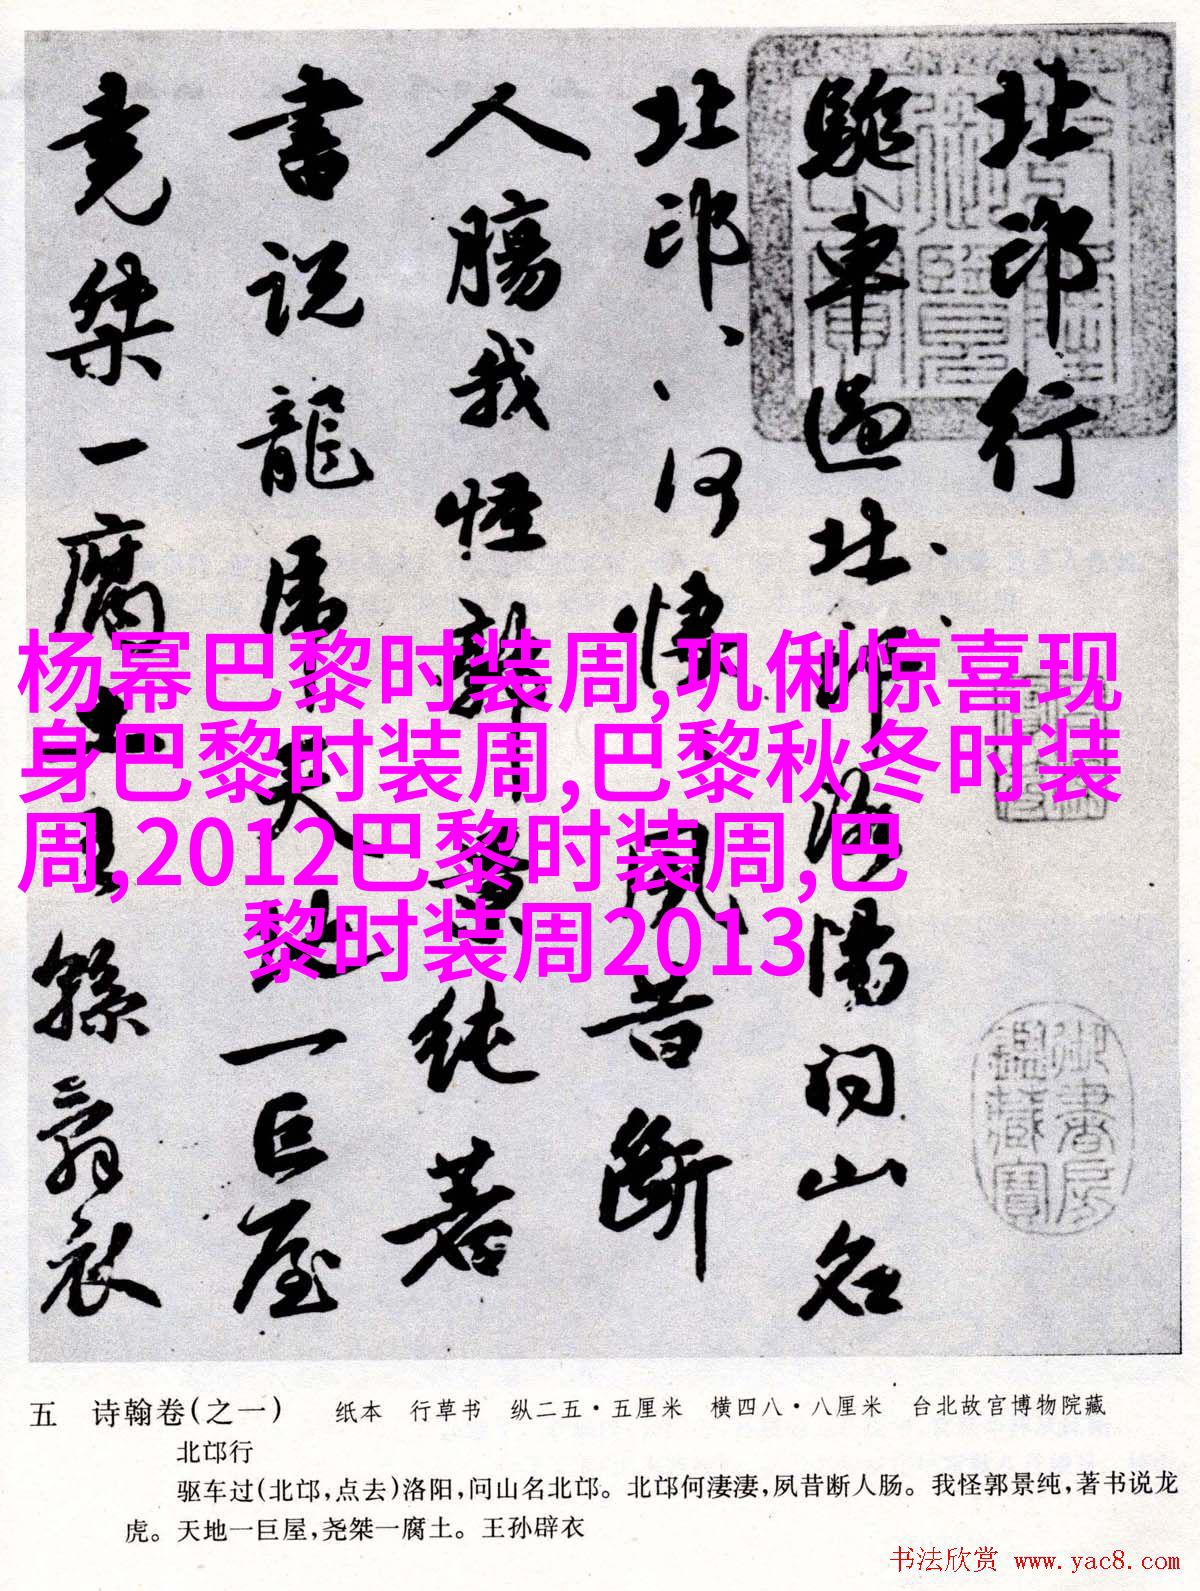 北邙行
驅車過北邙洛陽问山名
北邙、何悽、夙昔斷
人腸我怪郭景純著
書说龍虎天地一巨屋
尭桀一腐土王孫辟衣
御書房鑑藏寶
杨幂巴黎时装周,巩俐惊喜现
身巴黎时装周,巴黎秋冬时装
周,2012巴黎时装周,巴
黎时装周2013
五 诗翰卷(之一) 纸本 行草书 纵二五·五厘米 横四八·八厘米 台北故宫博物院藏
北邙行
驱车过(北邙,点去)洛阳,问山名北邙。北邙何淒淒,夙昔断人肠。我怪郭景纯,著书说龙
虎。天地一巨屋,尧桀一腐土。王孙辟衣
书法欣赏 www.yac8.com